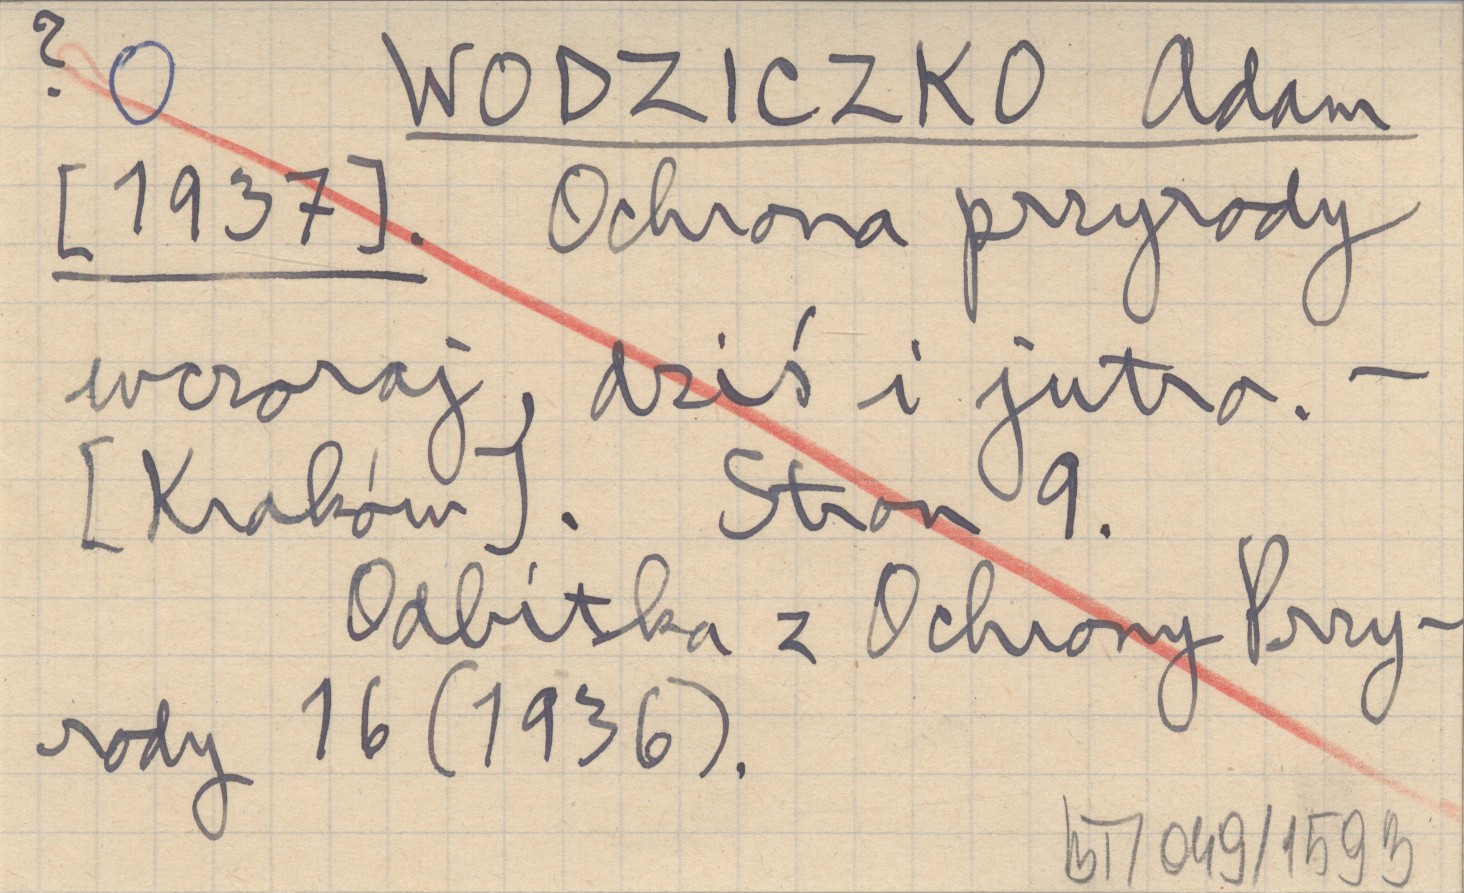 ? O WODZICZKO Adam
[1937]. Ochrona przyrody
wczoraj, dziś i jutro. –
[Kraków]. Stron 9.
Odbitka z Ochrony Przy-
rody 16 (1936).
BT/049/1593